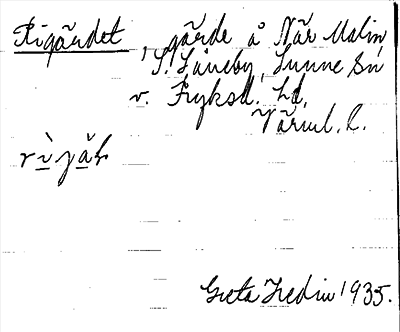 Rigärdet, gärde å När Malin,
S. Låneby, Sunne Sn
v. Fryksd. hd,
Värml. l.
Greta Hedin 1935.